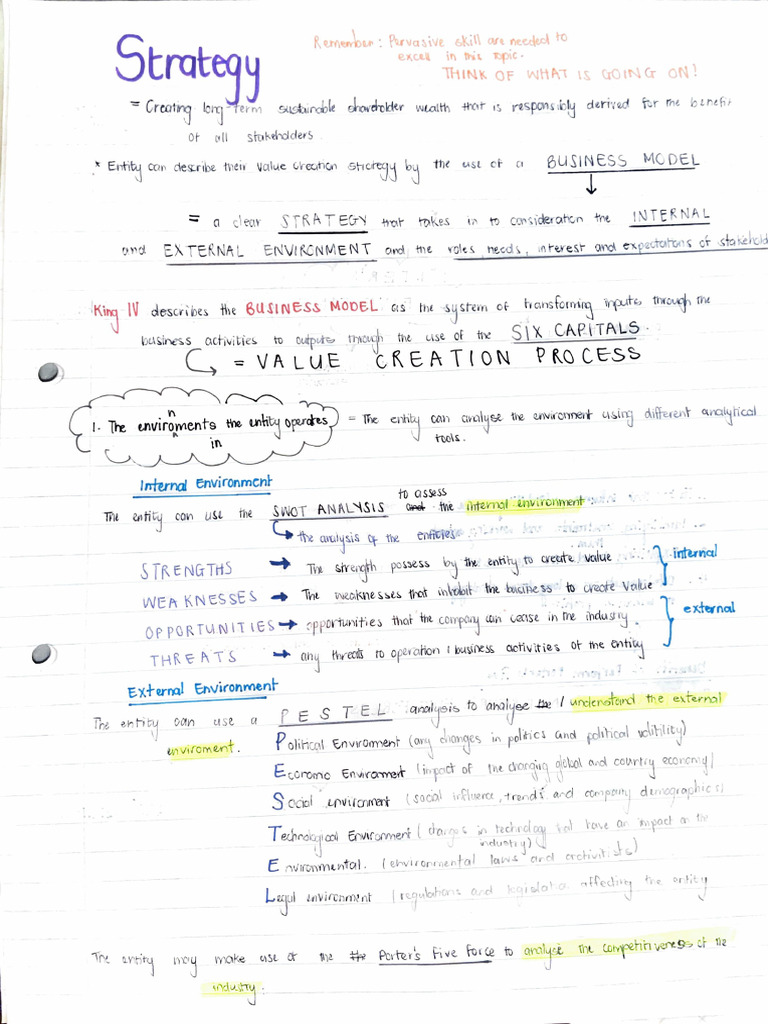 Strategy
Remember: Pervasive skill are needed to
excel in this topic.
THINK OF WHAT IS GOING ON!
= Creating long-term sustainable shareholder wealth that is responsibly derived for the benefit
of all stakeholders
* Entity can describe their value creation strategy by the use of a BUSINESS MODEL
= a clear STRATEGY that takes in to consideration the INTERNAL
and EXTERNAL ENVIRONMENT and the roles needs, interest and expectations of stakehold
King IV describes the BUSINESS MODEL as the system of transforming inputs through the
business activities to outputs through the use of the SIX CAPITALS.
= VALUE CREATION PROCESS
1. The enviroments the entity operates
n
in
= The entity can analyse the environment using different analytical
tools.
Internal Environment
to assess
The entity can use the SWOT ANALYSIS and the internal environment.
the analysis of the entities
STRENGTHS → The strength possess by the entity to create value
internal
WEAKNESSES → The weaknesses that inhibit the business to create value
OPPORTUNITIES → opportunities that the company can cease in the industry.
external
THREATS → any threats to operation / business activities of the entity
External Environment
The entity can use a PESTEL analysis to analyse the / understand the external
enviroment.
Political Enviroment (any changes in politics and political volitility)
Economic Enviroment (impact of the changing global and country economy)
Social environment (social influence, trends and company demographics)
Technological Environment (changes in technology that have an impact on the
industry)
Environmental. (environmental laws and activitists)
Legal environment (regulations and legislation affecting the entity
The entity may make use of the the Porter's Five Force to analyse the competitiveness of the
industry.